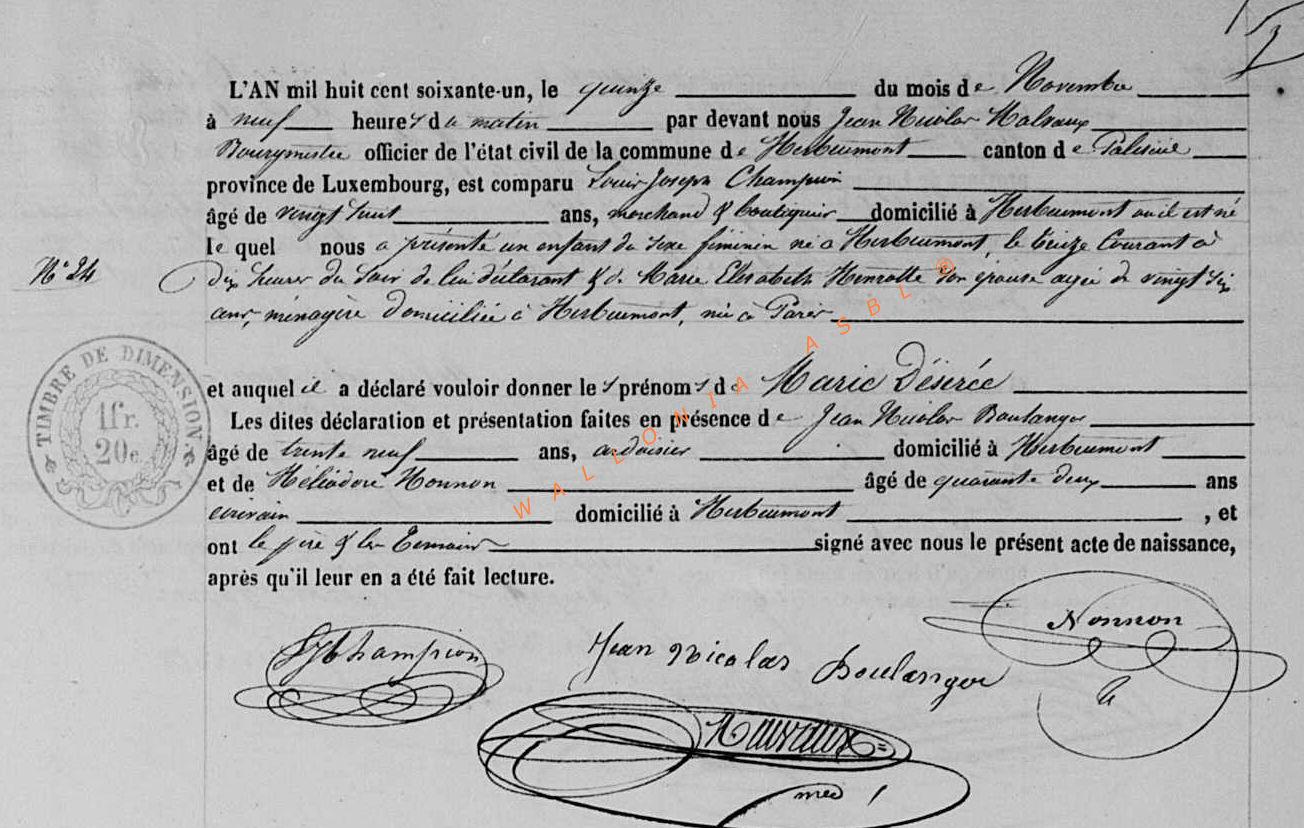 L'AN mil huit cent soixante-un, le quinze du mois de Novembre
à neuf heures du matin par devant nous Jean Nicolas Malvaux
Bourgmestre officier de l'état civil de la commune de Herbeumont canton de Paliseul
province de Luxembourg, est comparu Louis Joseph Champion
âgé de vingt huit ans, marchand & boutiquier domicilié à Herbeumont où il est né
le quel nous a présenté un enfant du sexe féminin né à Herbeumont, le treize Courant à
N° 24
dix heures du soir de lui déclarant & de Marie Elisabeth Henrotte son épouse agée de vingt six
ans, ménagère domiciliée à Herbeumont, née à
et auquel il a déclaré vouloir donner les prénoms de Marie Désirée
TIMBRE DE DIMENSION
1fr.
20c.
Les dites déclaration et présentation faites en présence de Jean Nicolas Boulanger
âgé de trente neuf ans, ardoisier domicilié à Herbeumont
et de Héliodore Nonnon âgé de quarante deux ans
écrivain domicilié à Herbeumont , et
ont le père & les témoins signé avec nous le présent acte de naissance,
après qu'il leur en a été fait lecture.
WALLONIA ASBL ®
Champion
Jean Nicolas Boulanger
Nonnon